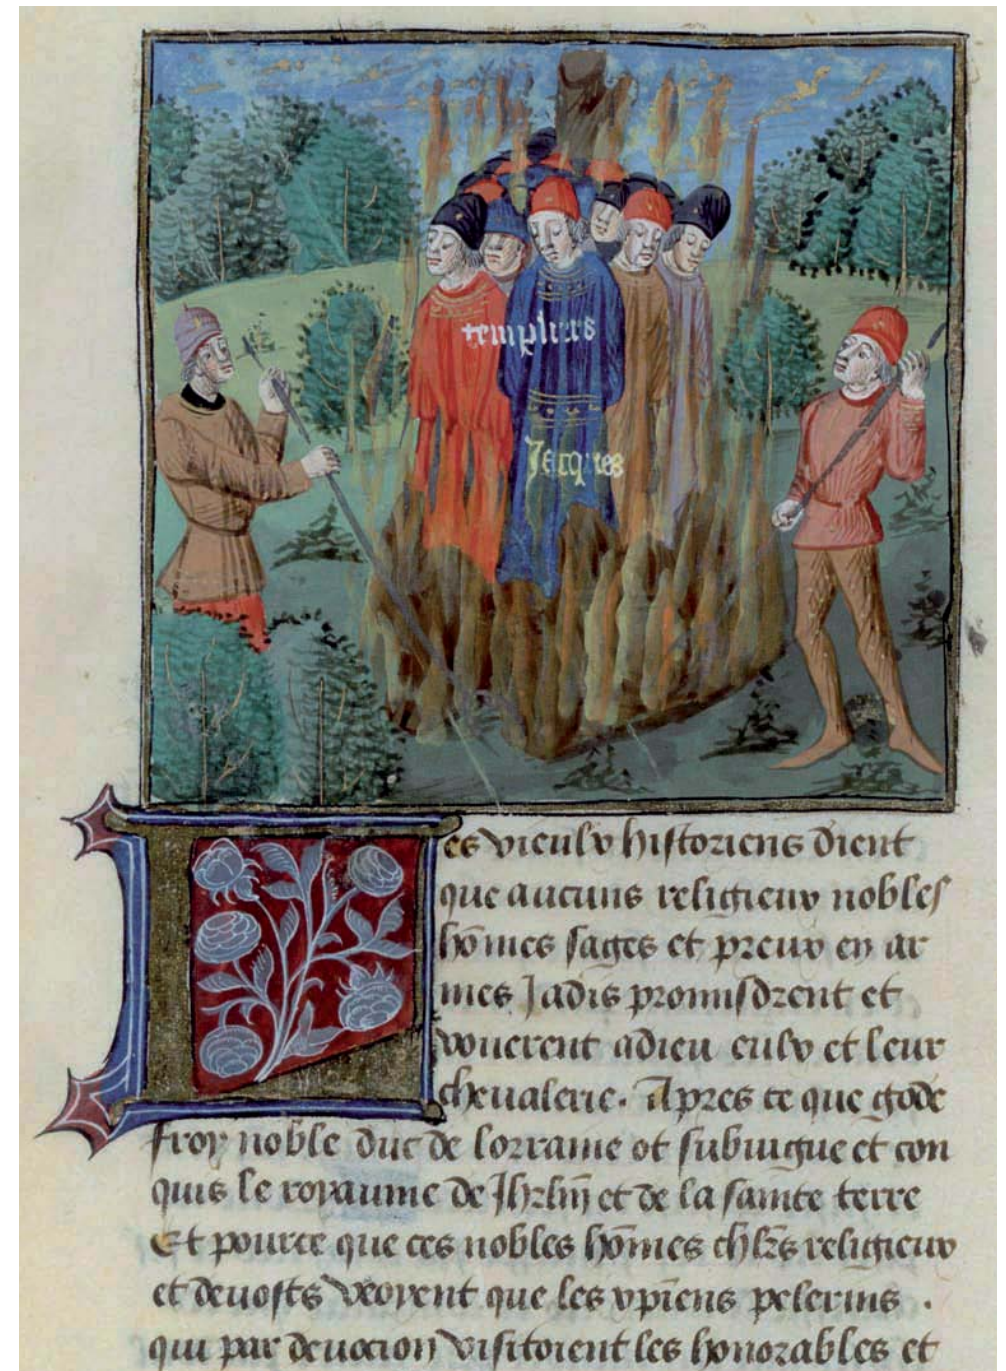 templiers
Jacques
Les vieulx historiens dient
que aucuns religieux nobles
hōmes sages et preux en ar
mes Jadis promisdrent et
vouerent adieu eulx et leur
chevalerie. Apres ce que gode
froy noble duc de lorraine ot subiugue et con
quis le royaume de Jhrlm̄ et de la sainte terre
Et pource que ces nobles hōmes chl̄rs religieux
et devosts veoyent que les xp̄iens pelerins .
qui par devocion visitoient les honorables et